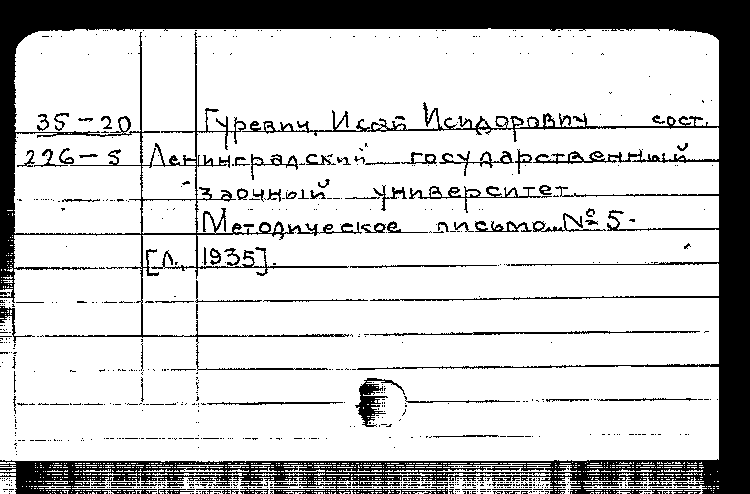 35-20 Гуревич, Исай Исидорович сост.
226-5 Ленинградский государственный
заочный университет.
Методическое письмо №5-
[Л., 1935].